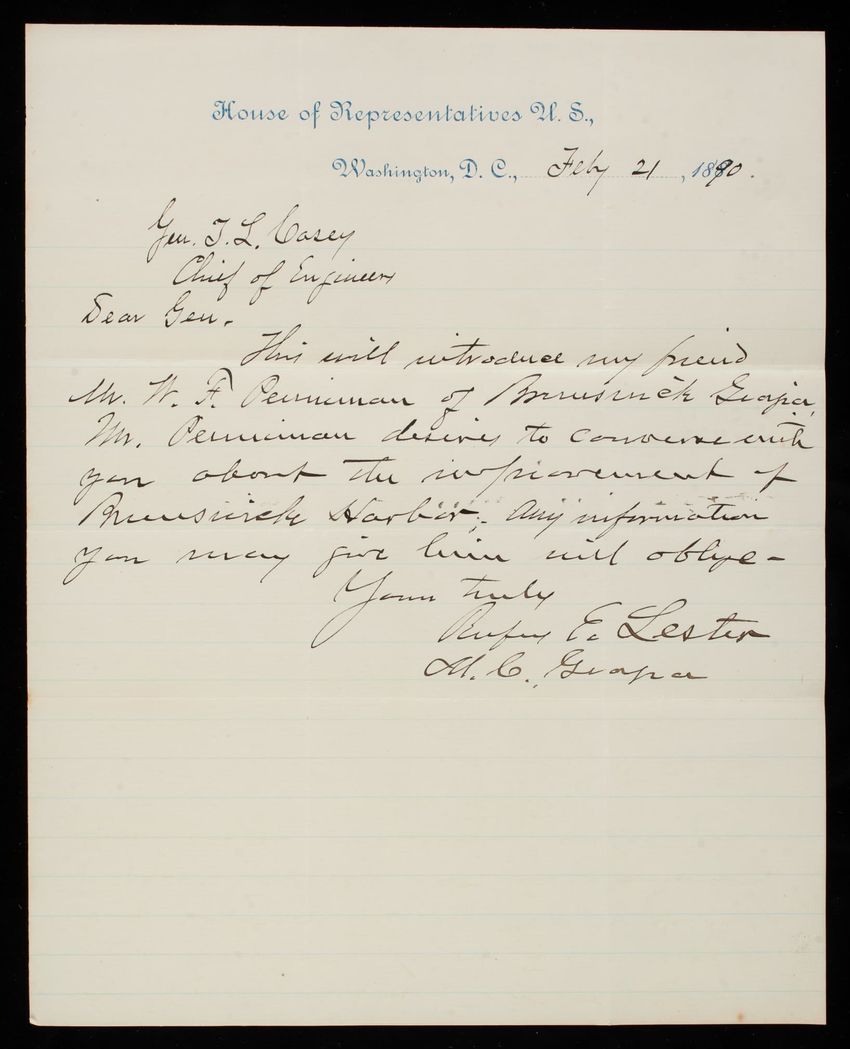 House of Representatives U. S.,
Washington, D. C., Feby 21, 1890.
Gen. T. L. Casey
Chief of Engineers
Dear Gen.
This will introduce my friend
Mr. W. F. Penniman of Brunswick Georgia,
Mr. Penniman desires to converse with
you about the improvement of
Brunswick Harbor; Any information
you may give him will oblige -
Yours truly
Rufus E. Lester
M. C., Georgia